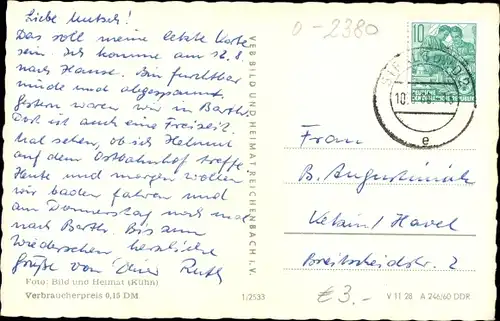 Liebe Mutsch!
Das soll meine letzte Karte
sein. Ich komme am 12.8.
nach Hause. Bin furchtbar
müde und abgespannt.
Gestern waren wir in Barth.
Dort ist auch eine Freizeit.
Mal sehen, ob ich Helmut
auf dem Ostbahnhof treffe.
Heute und morgen wollen
wir baden fahren und
am Donnerstag noch mal
nach Barth. Bis zum
Wiedersehen herzliche
Grüße von Deiner Ruth
Foto: Bild und Heimat (Kühn)
Verbraucherpreis 0,15 DM
1/2533
VEB BILD UND HEIMAT REICHENBACH I. V.
0-2380
10
STRALSUND
10.
e
Frau
B. Augustiniak
Ketzin/Havel
Breitscheidstr. 2
€ 3.-
V 11 28 A 246/60 DDR